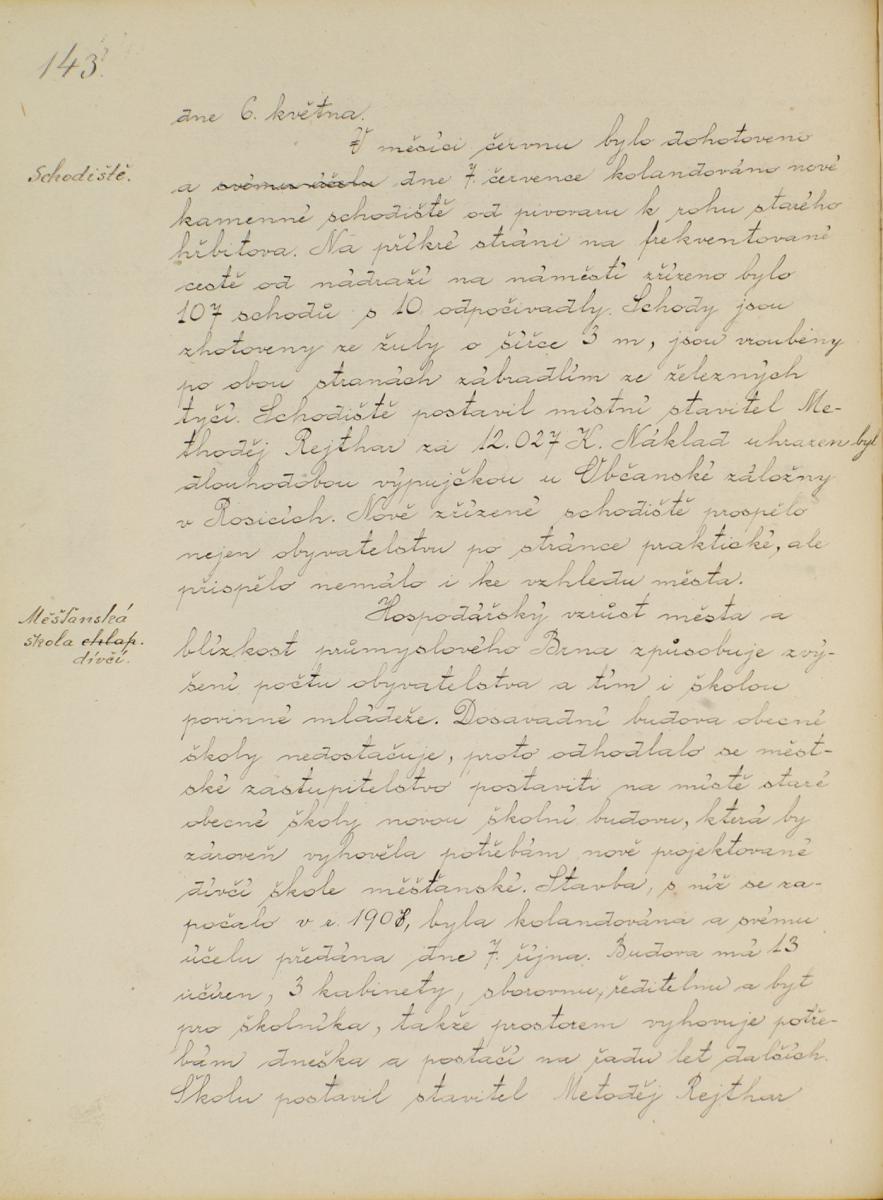 143.
dne 6. května.
V měsíci červnu bylo dohotoveno
Schodiště.
a svému účelu dne 7. července kolandováno nové
kamenné schodiště od pivovaru k rohu starého
hřbitova. Na příkré stráni na frekventované
cestě od nádraží na náměstí zřízeno bylo
107 schodů s 10 odpočivadly. Schody jsou
zhotoveny ze žuly o šířce 3 m, jsou vroubeny
po obou stranách zábradlím ze železných
tyčí. Schodiště postavil místní stavitel Me-
thoděj Rejthar za 12.027 K. Náklad uhrazen byl
dlouhodobou výpujčkou u Občanské záložny
v Rosicích. Nově zřízené schodiště prospělo
nejen obyvatelstvu po stránce praktické, ale
přispělo nemálo i ke vzhledu města.
Měšťanská
škola chlap.
dívčí.
Hospodářský vzrůst města a
blízkost průmyslového Brna způsobuje zvý-
šení počtu obyvatelstva a tím i školou
povinné mládeže. Dosavadní budova obecné
školy nedostačuje, proto odhodlalo se měst-
ské zastupitelstvo postaviti na místě staré
obecné školy novou školní budovu, která by
zároveň vyhověla potřebám nově projektované
dívčí škole měšťanské. Stavba, s níž se za-
počalo v r. 1908, byla kolandována a svému
účelu předána dne 7. října. Budova má 13
učíren, 3 kabinety, sborovnu, ředitelnu a byt
pro školníka, takže prostorem vyhovuje potře-
bám dneška a postačí na řadu let dalších.
Školu postavil stavitel Metoděj Rejthar